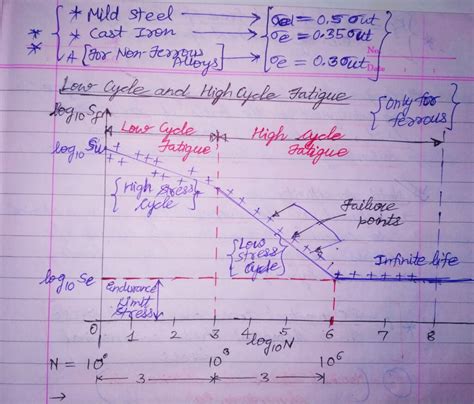 * Mild steel → σe = 0.5 σut
* Cast Iron → σe = 0.35 σut
* A [For Non-Ferrous Alloys] σe = 0.3 σut
No.
Date
Low Cycle and High Cycle Fatigue
{Only for ferrous}
log10 Sf
Low Cycle Fatigue
High Cycle Fatigue
log10 Su
{High stress cycle}
Failure points
{Low stress cycle}
Infinite life
log10 Se
Endurance Limit Stress
0 1 2 3 4 5 6 7 8
log10 N
N = 10⁰ 10³ 10⁶
3 3